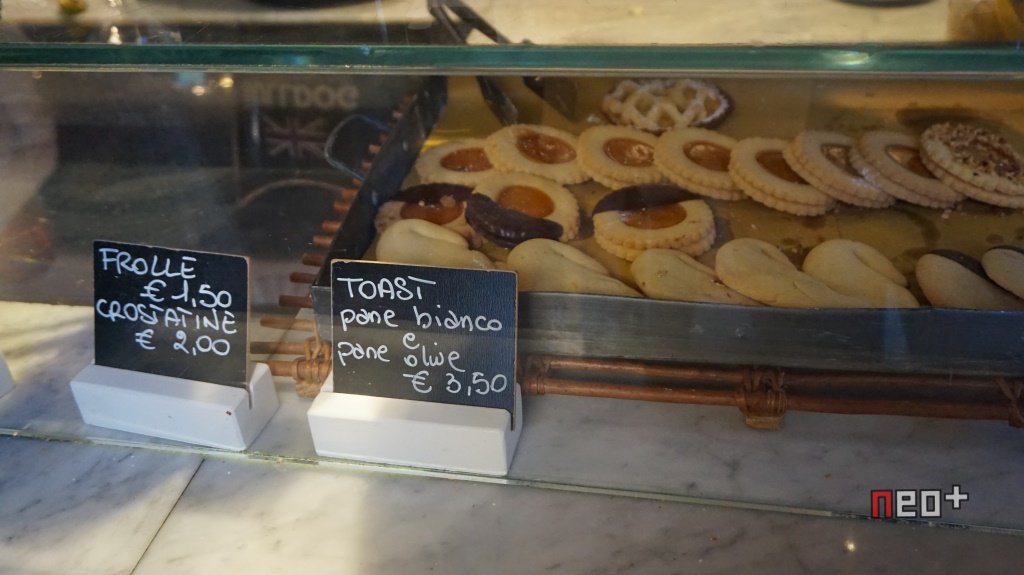 LLDOG
FROLLE
€ 1,50
CROSTATINE
€ 2,00
TOAST
pane bianco
e
pane olive
€ 3,50
neo+